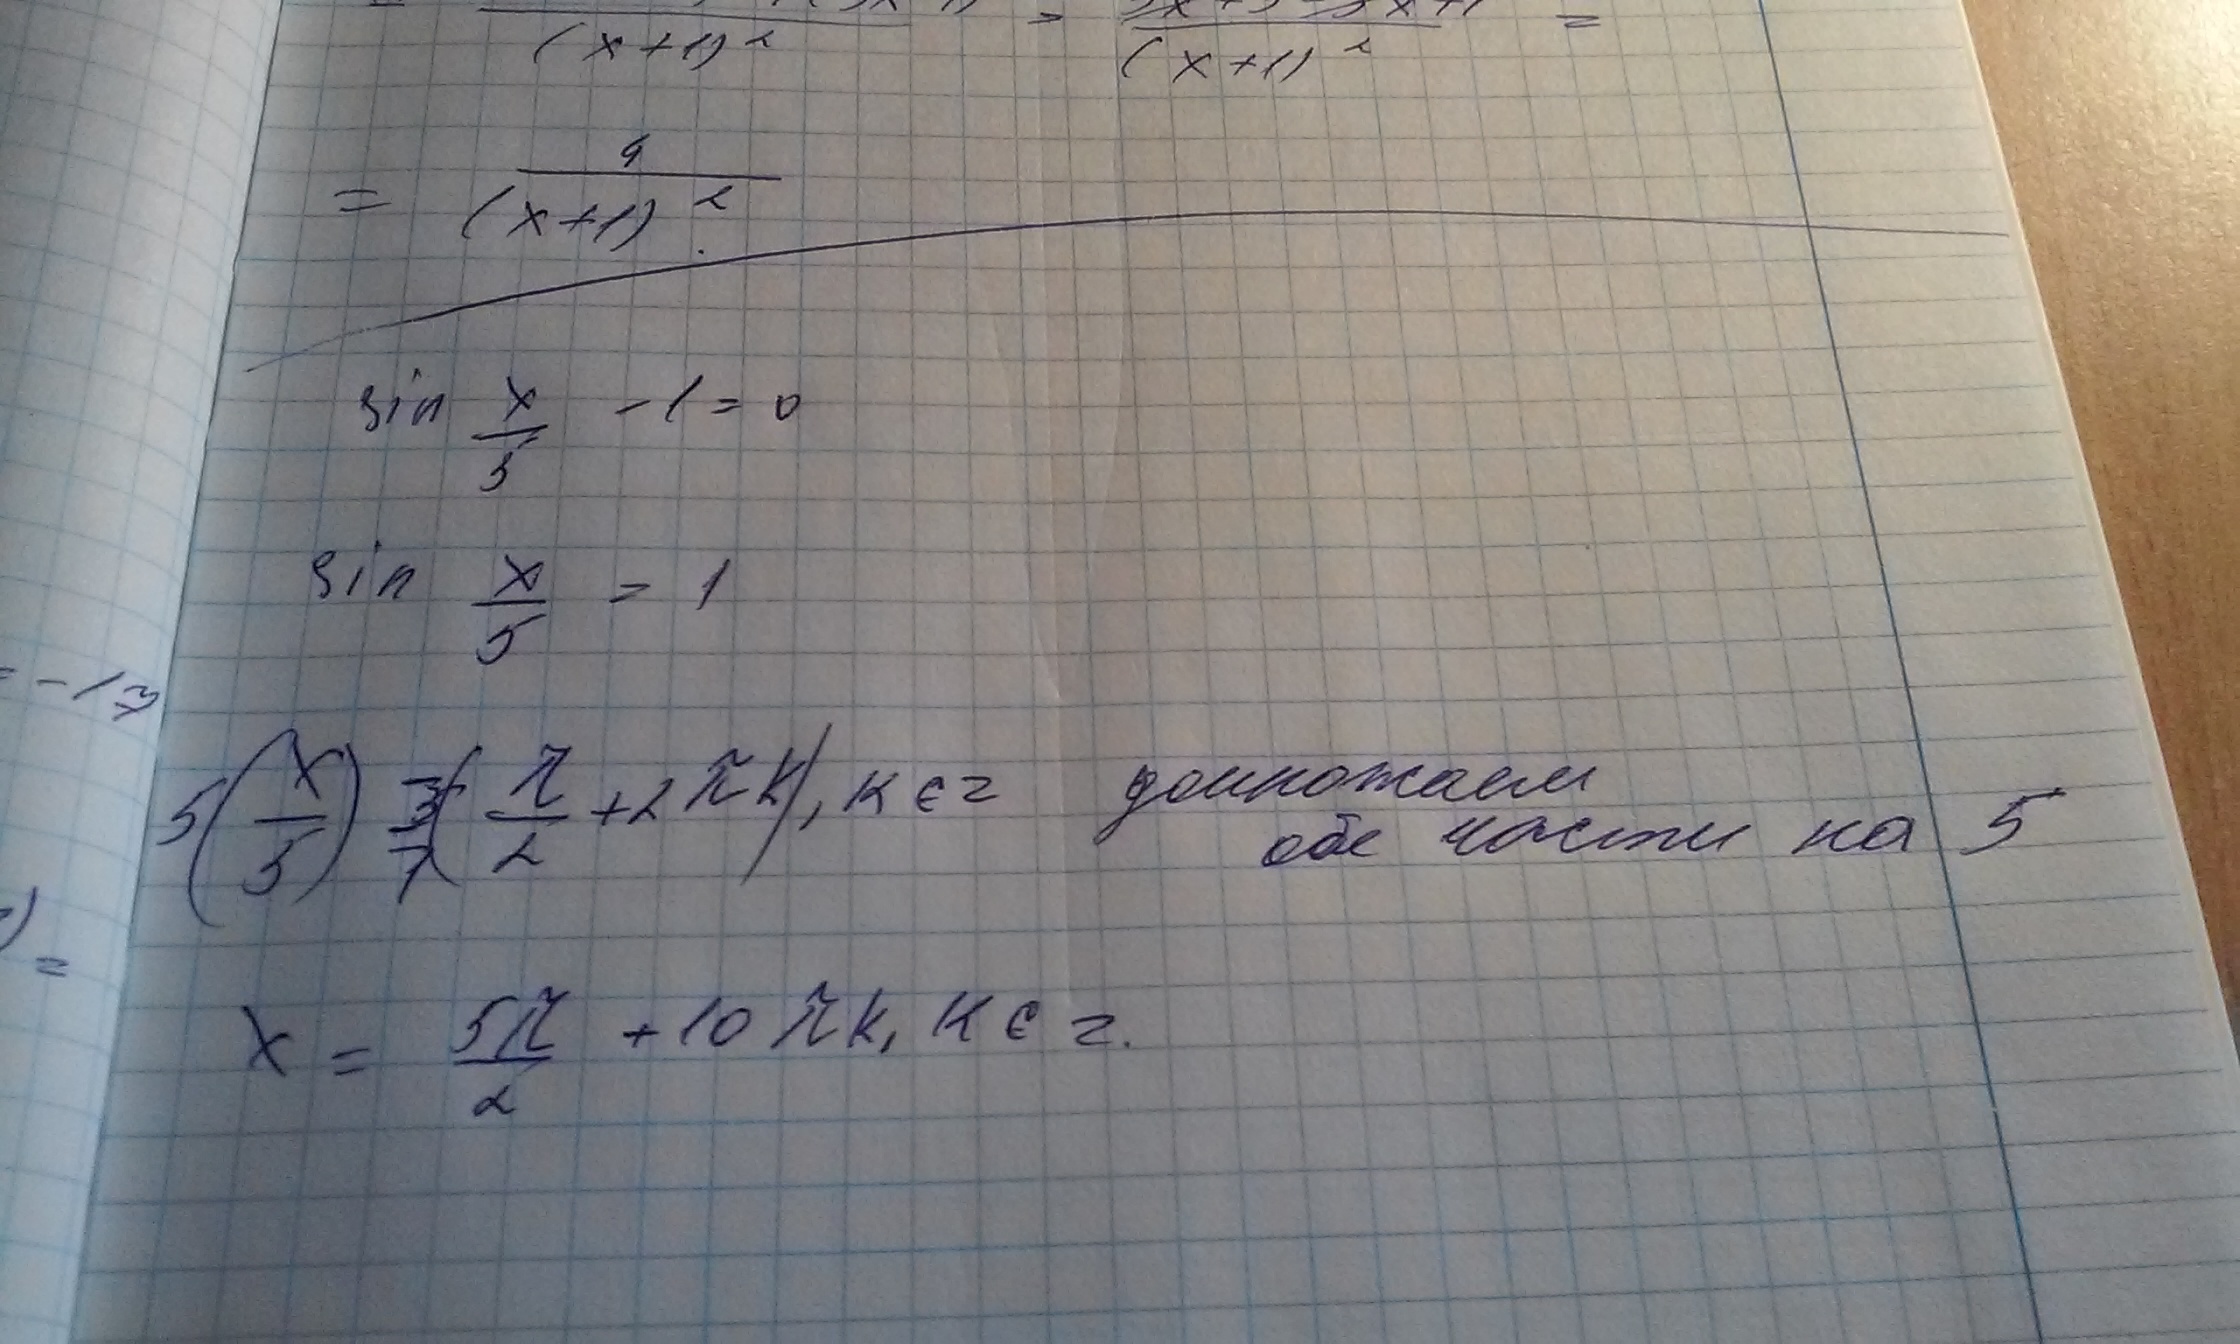 (x+1)² = 3x+3-3x+1 / (x+1)² =
= 4/(x+1)²
sin x/5 - 1 = 0
sin x/5 = 1
= -1
5(x/5) = (π/2 + 2πk), k ∈ z домножаем
обе части на 5
) =
x = 5π/2 + 10πk, k ∈ z.